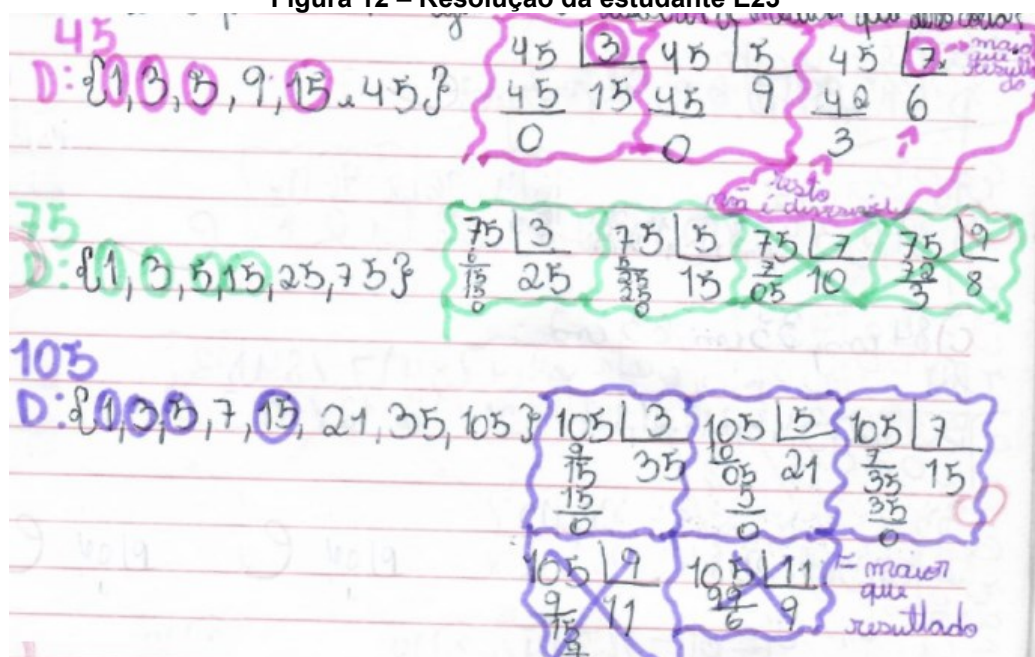 Figura 12 – Resolução da estudante E25
que
45
D: {1, 3, 5, 9, 15, 45}
45 | 3
45 15
0
45 | 5
45 9
0
45 | 7 → maior
que
resulta
do
42 6
3
resto
não é
75
D: {1, 3, 5, 15, 25, 75}
75 | 3
6
15 25
15
0
75 | 5
5
25 15
25
0
75 | 7
7
05 10
75 | 9
72 8
3
105
D: {1, 3, 5, 7, 15, 21, 35, 105}
105 | 3
9
15 35
15
0
105 | 5
10
05 21
5
0
105 | 7
7
35 15
35
0
105 | 9
9
15 11
9
105 | 11
99 9
6
maior
que
resultado